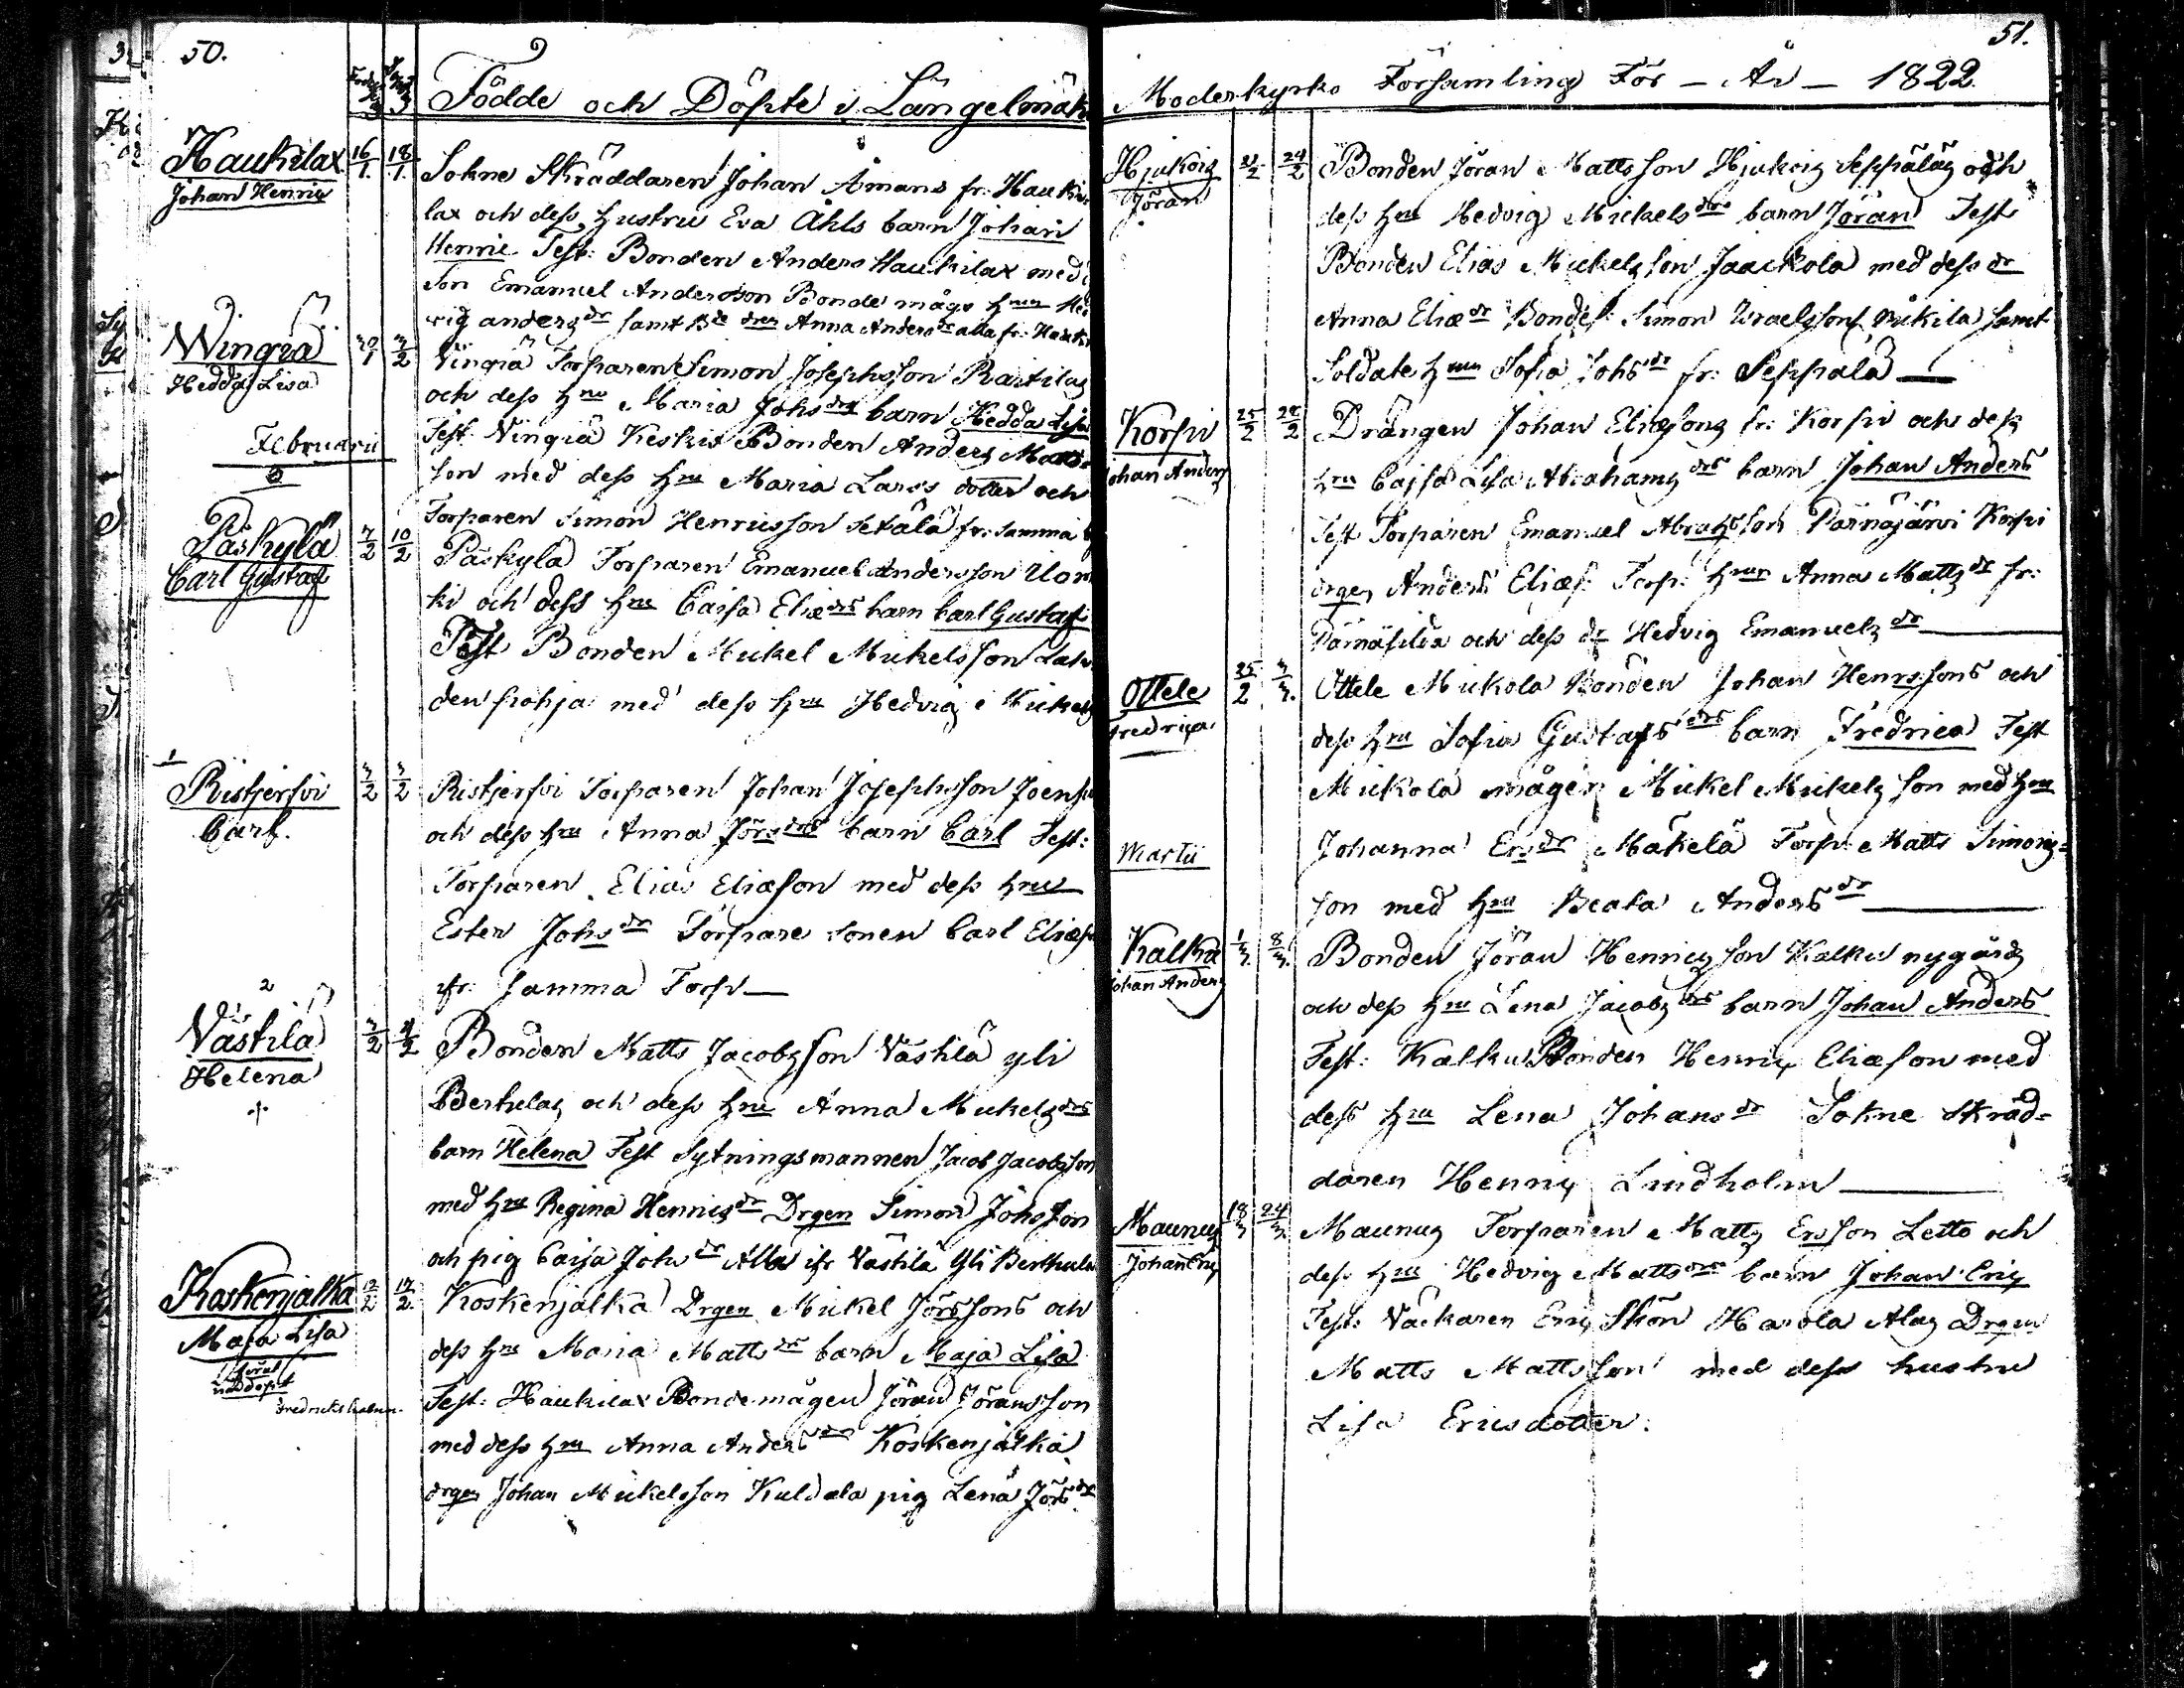 50.
Födde och Döpte i Längelmäki
Haukilax 16/1. 18/1.
Johan Henric
Sokne Skräddaren Johan Åmans fr. Hauki-
lax och dess hustru Eva Åhls barn Johan
Henric Test: Bonden Anders Haukilax med
Son Emanuel Andersson Bonde mågs hrun
vig anders dr samt Anna Anders dr alla fr.
Wingiä 30/1 3/2
Hedda Lisa
Vingiä Torparen Simon Josephsson Rastilas
och dess hru Maria Johs drs barn Hedda Lisa
Test. Vingiä Keskis Bonden Anders Matts-
son med dess hru Maria Larss dotter och
Torparen Simon Henricsson Setälä fr. samma
Februarii
Päskylä 7/2 10/2
Carl Gustaf
Päskylä Torparen Emanuel Andersson
ki och dess hru Caisa Eliæ drs barn Carl Gustaf
Test Bonden Mickel Mickelsson
den pohja med dess hru Hedvig Mickels
1
Ristjerfvi 3/2 3/2
Carl.
Ristjerfvi Torparen Johan Josephsson
och dess hru Anna Jörs drs barn Carl Test:
Torparen Elias Eliæson med dess hru
Ester Johs dr Torpare sonen Carl
fr. samma Torp
2
Västilä 3/2 4/2
Helena
Bonden Matts Jacobsson Västilä yli
Bertulas och dess hru Anna Mickels drs
barn Helena Test Sytningsmannen Jacob Jacobsson
med hru Regina Henrics dr Drgen Simon Johsson
och pig Caisa Johs dr Alla ifr Västilä Yli
Koskenjalka 12/2 17/2.
Maja Lisa
Fredrikshamn.
Koskenjalka Drgen Mickel Jörssons och
dess hru Maria Matts dr barn Maja Lisa
Test: Haukilax Bonde mågen Jöran Jöransson
med dess hru Anna Anders dr Koskenjalka
drgen Johan Mickelsson Kuldala pig Lena Jörs dr
51.
Moderkyrko Församling För - År - 1822
Hjukois 21/2 24/2
Jöran
Bonden Jöran Mattsson Hjukois Seppäläs och
dess hru Hedvig Mickels drs barn Jöran Test
Bonden Elias Mickelsson Jaackola med dess dr
Anna Eliæ dr Bondes. Simon Israelsson Mikila samt
Soldate hrun Sofia Johs dr fr. Seppälä
Korpi 25/2 28/2
Johan Anders
Drängen Johan Eliæsons fr. Korpi och dess
hru Cajsa Lisa Abrahams drs barn Johan Anders
Test Torparen Emanuel Abrahsson Pärnäjärvi Korpi
drgen Anders Eliæs. Torp. hrun Anna Matts dr fr.
och dess dr Hedvig Emanuels dr
Ottele 25/2 3/3.
Fredrica
Ottele Mickola Bonden Johan Henrssons och
dess hru Sofia Gustafs drs barn Fredrica Test
Mickola mågen Mickel Mickelsson med hru
Johanna Ers dr Mäkelä Torp. Matts Simons-
son med hru Beata Anders dr
Martii
Kalku 1/3. 8/3.
Johan Anders
Bonden Jöran Henricsson Kalku nygårds
och dess hru Lena Jacobs drs barn Johan Anders
Test: Kalku Bonden Henric Eliæson med
dess hru Lena Johans dr Sokne Skräd-
daren Henric Lindholm
Maunus 18/3 24/3
Johan Eric
Maunus Torparen Matts Ersson Letto och
dess hru Hedvig Matts drs barn Johan Eric
Test: Väckaren Eric Skön Harola Alas Drgen
Matts Mattsson med dess hustru
Lisa Ericsdotter.